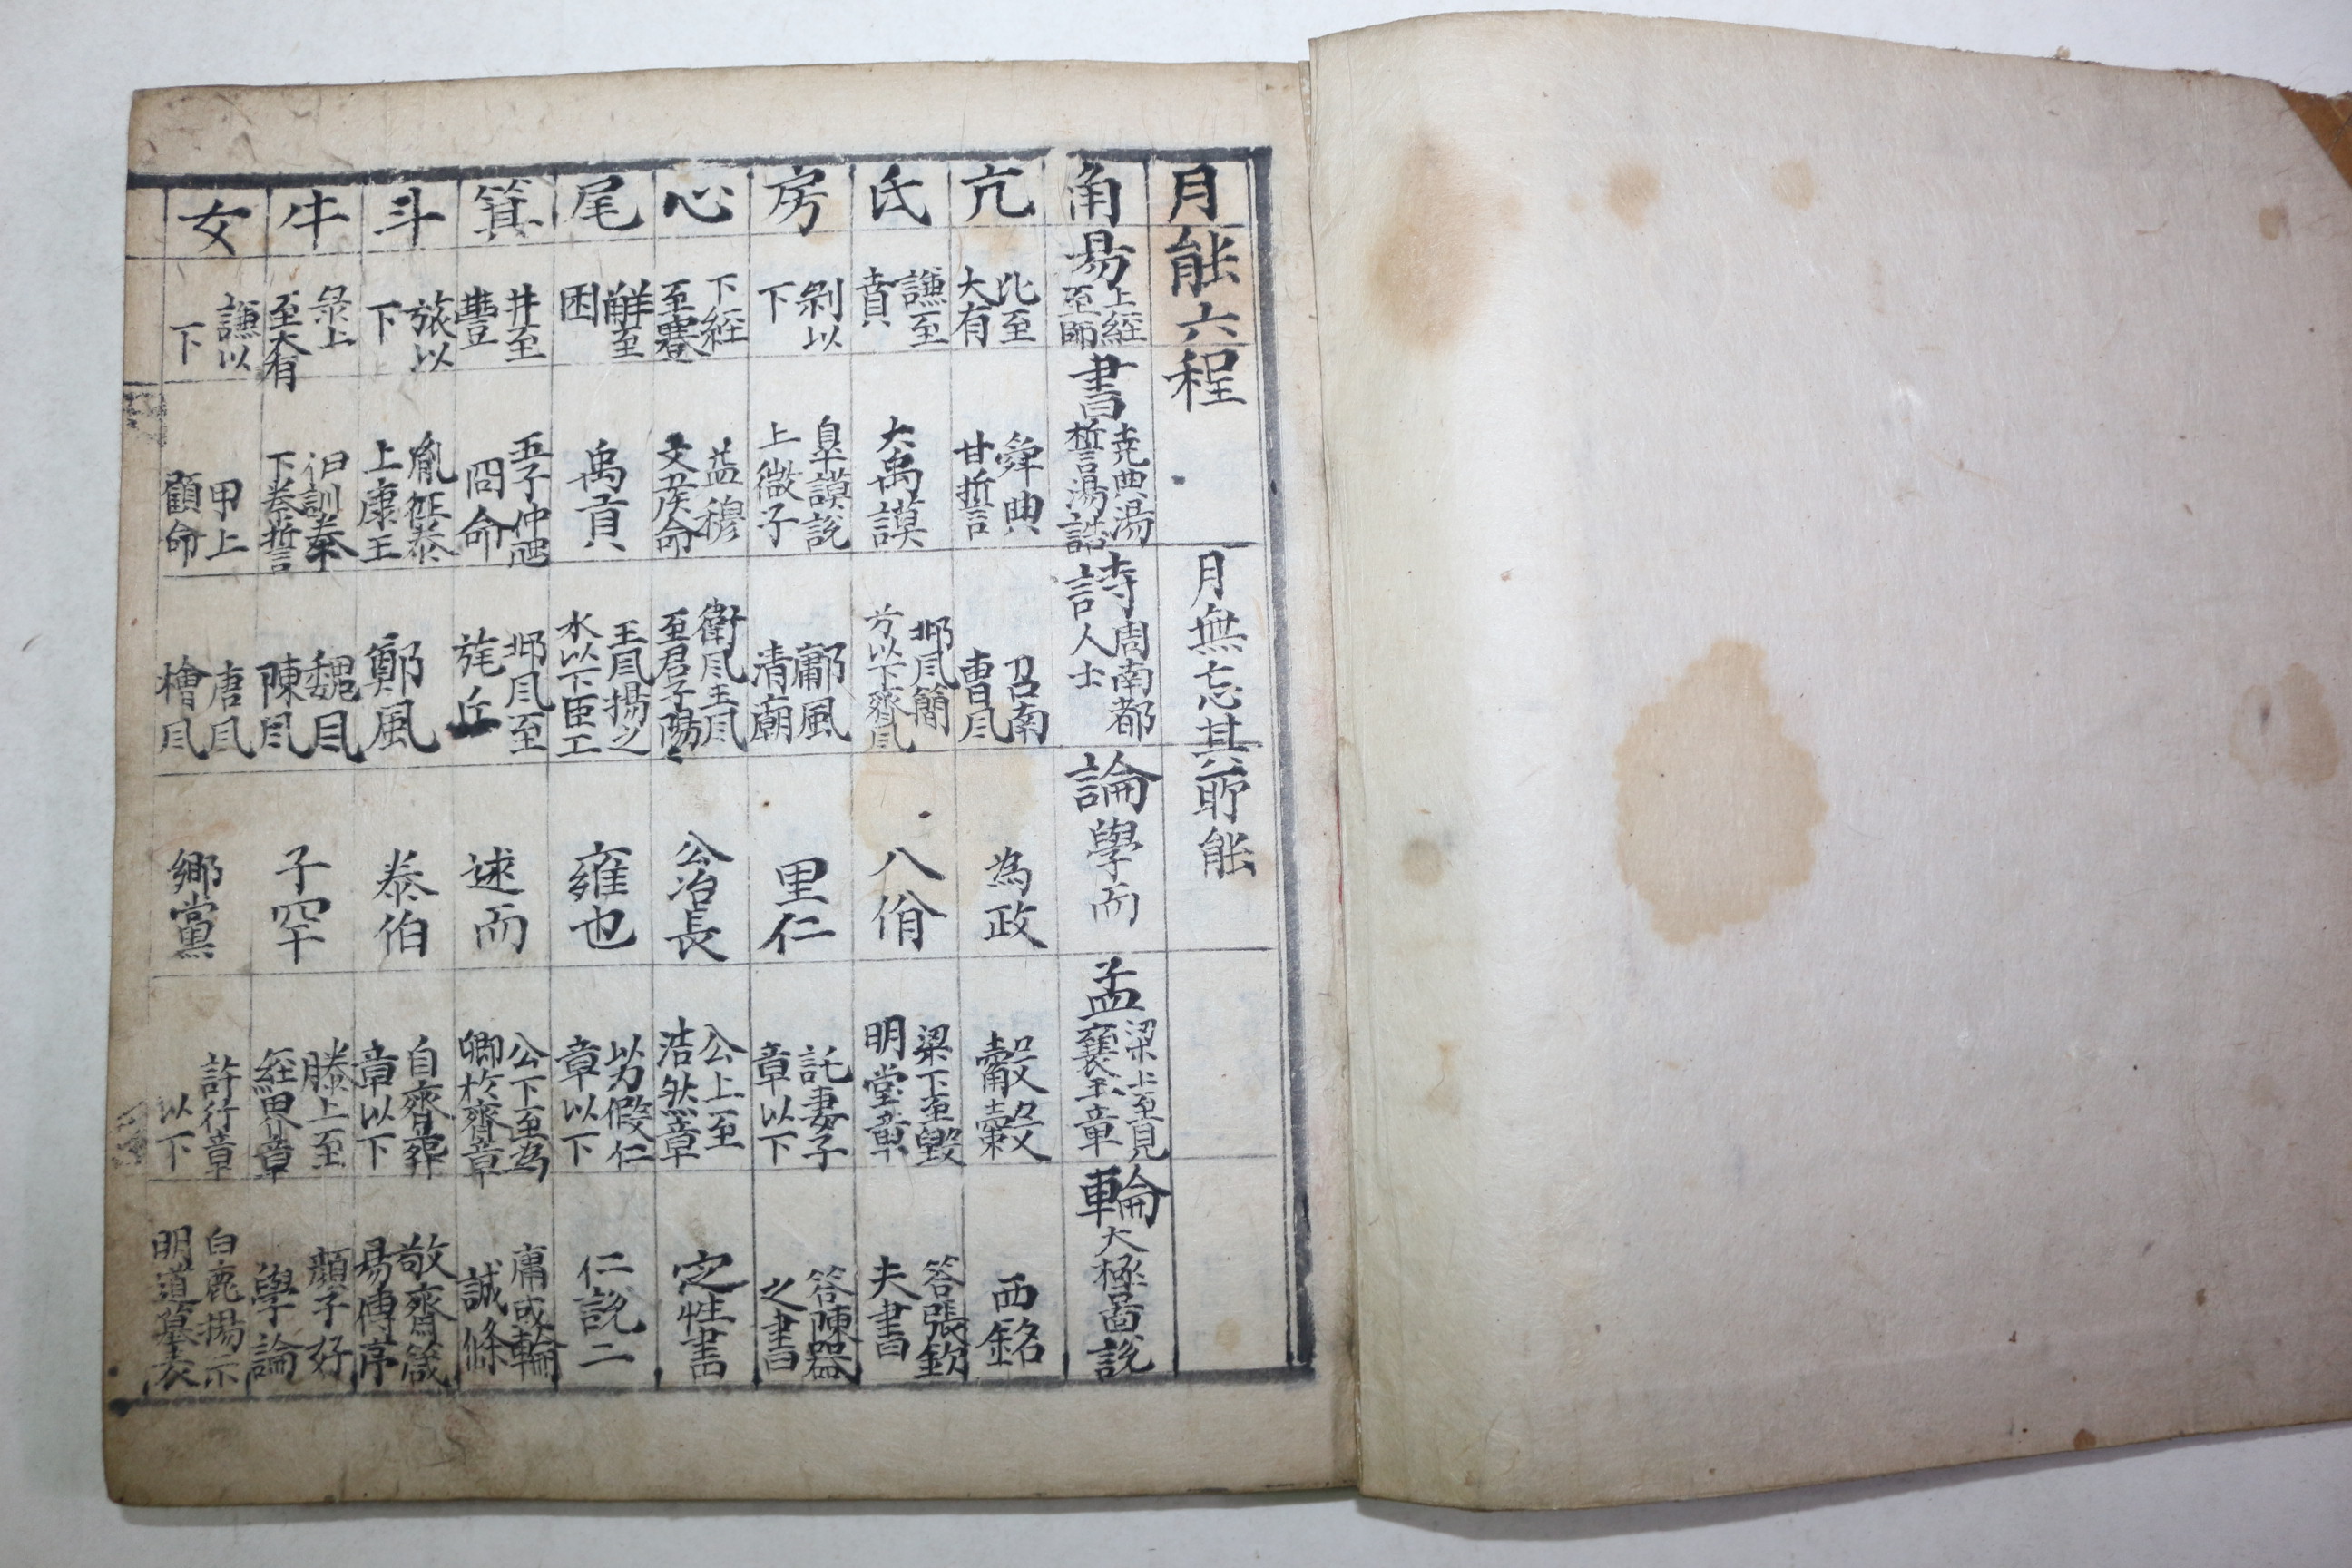 月能六程 月無忘其所能
角 易 上經至師 書 堯典湯誓湯誥 詩 周南都人士 論 學而 孟 梁上至見襄王章 輪 大極啚說
亢 比至大有 舜典甘誓 召南曺風 為政 西銘
氐 謙至賁 大禹謨 邶風簡兮以下齊風 八佾 梁下至毁明堂章 答張欽夫書
房 剝以下 皐謨說上微子 鄘風清廟 里仁 託妻子章以下 答陳器之書
心 下經至蹇 益穆文侯命 衛風王風至君子陽〻 公冶長 公上至浩然章 定性書
尾 解至困 禹貢 王風揚之水以下臣工 雍也 以力假仁章以下 仁說二
箕 井至豐 五子仲虺冏命 邶風至旄丘 述而 公下至為卿於齊章 庸或輪誠條
斗 旅以下 胤征泰上康王 鄭風 泰伯 自齊葬章以下 敬齋箴易傳序
牛 彖上至大有 伊訓泰下秦誓 魏風陳風 子罕 滕上至經界章 顏子好學論
女 謙以下 甲上顧命 唐風檜風 鄉黨 許行章以下 白鹿揭示明道墓表